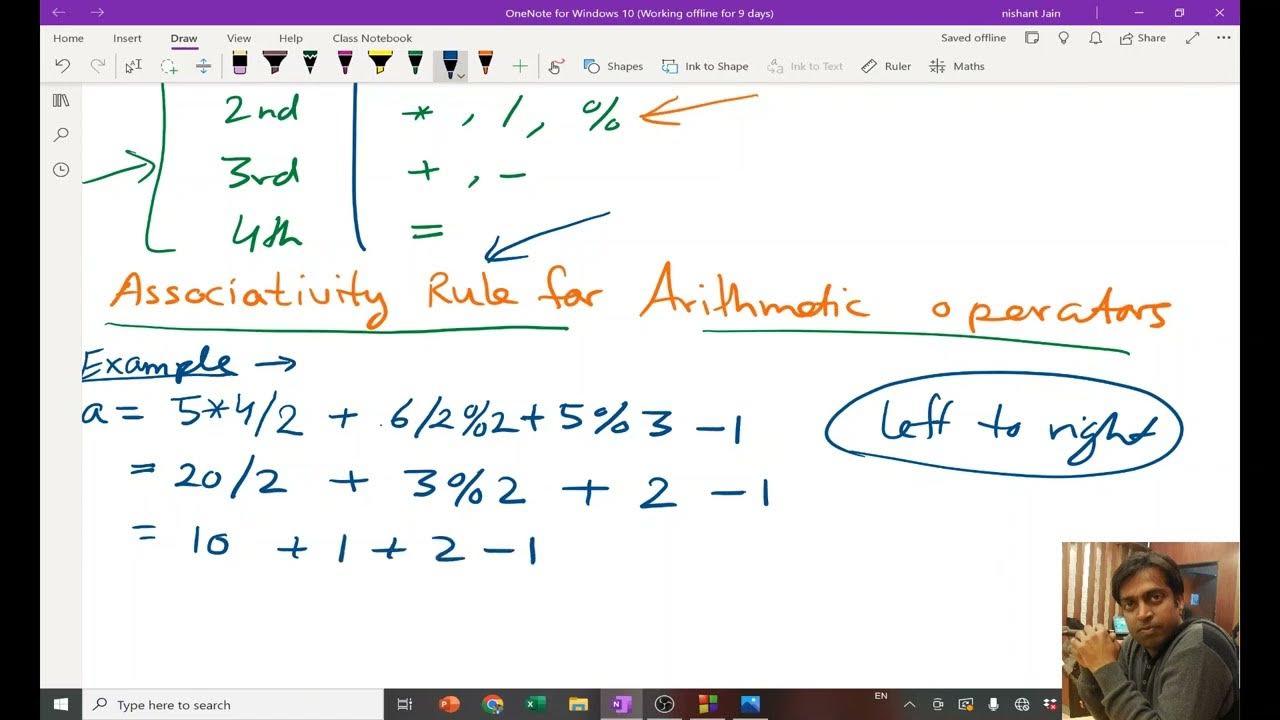 OneNote for Windows 10 (Working offline for 9 days)
nishant Jain
Home Insert Draw View Help Class Notebook
Saved offline Share
Shapes Ink to Shape Ink to Text Ruler Maths
2nd *, /, %
3rd +, -
4th =
Associativity Rule for Arithmetic operators
Example →
a = 5*4/2 + 6/2%2 + 5%3 - 1
left to right
= 20/2 + 3%2 + 2 - 1
= 10 + 1 + 2 - 1
Type here to search
EN